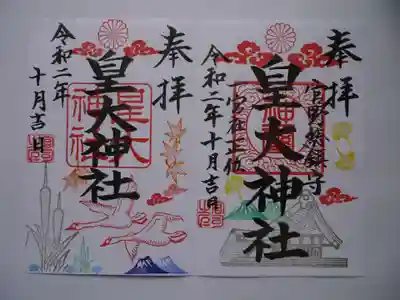 奉拝
皇大神社
令和二年
十月吉日
奉拝
官野繁鎮守
皇大神社
令和二年十月吉日